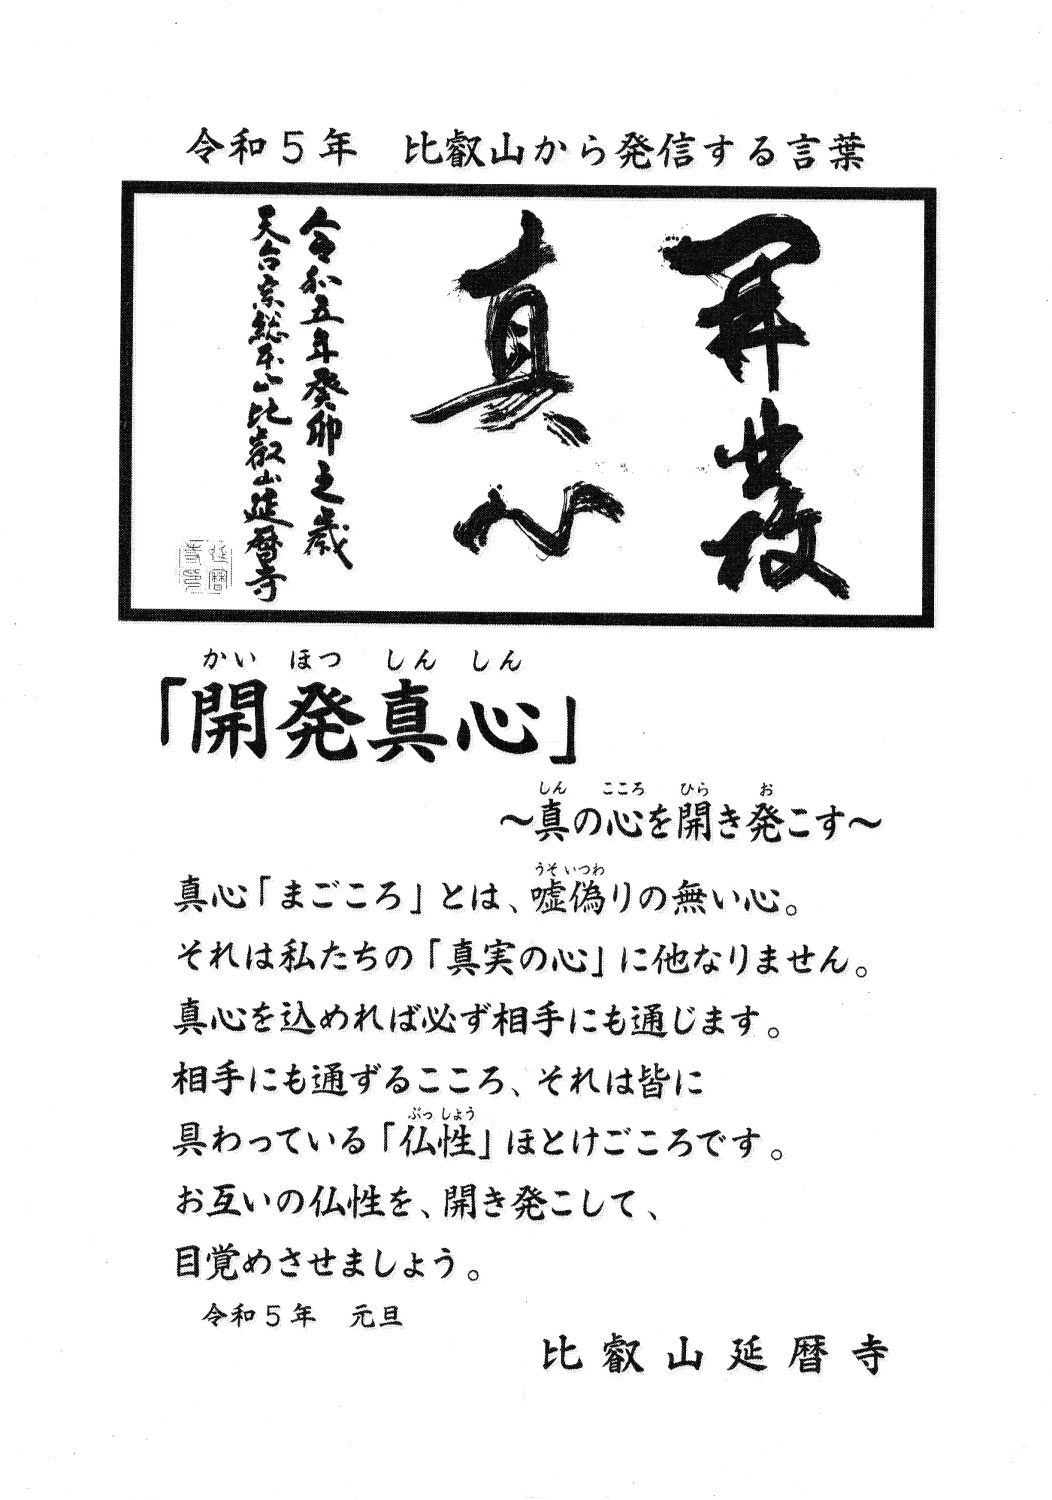 令和5年　比叡山から発信する言葉
開發
真心
令和五年癸卯之歳
天台宗総本山比叡山延暦寺
かい ほつ しん しん
「開発真心」
しん こころ ひら お
～真の心を開き発こす～
うそ いつわ
真心「まごころ」とは、嘘偽りの無い心。
それは私たちの「真実の心」に他なりません。
真心を込めれば必ず相手にも通じます。
相手にも通ずるこころ、それは皆に
ぶっ しょう
具わっている「仏性」ほとけごころです。
お互いの仏性を、開き発こして、
目覚めさせましょう。
令和5年　元旦
比叡山延暦寺